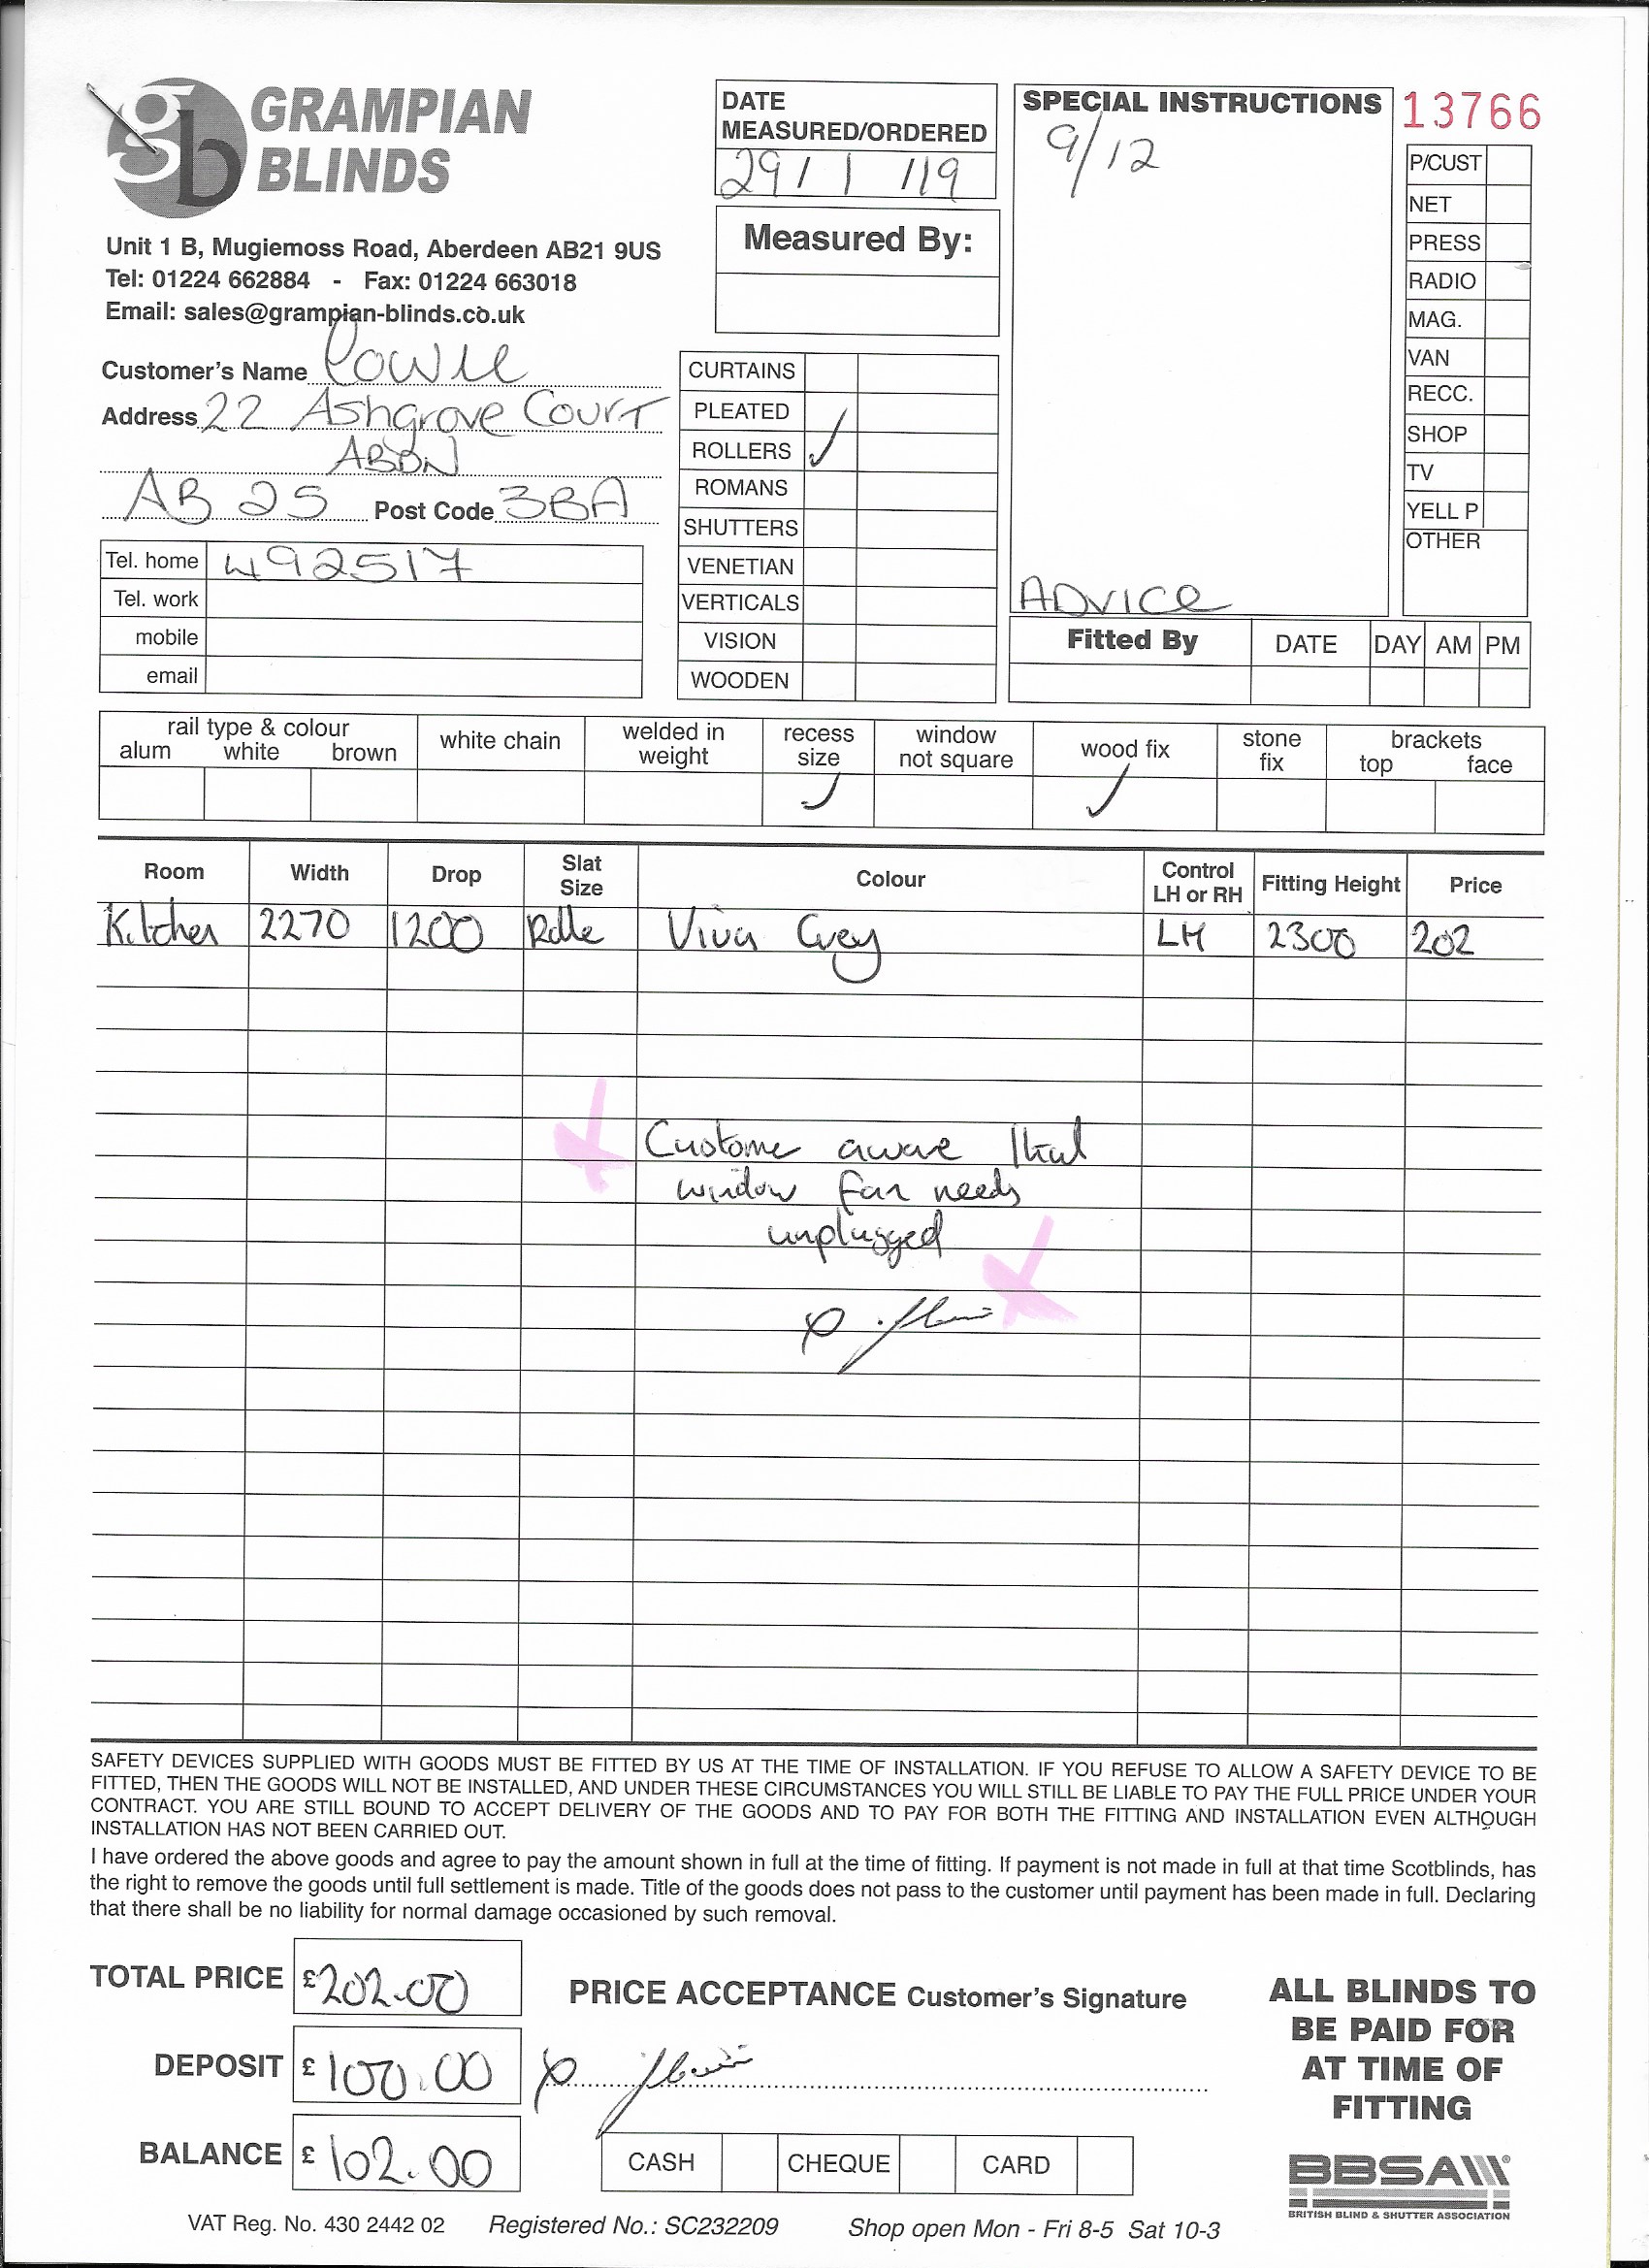 gb GRAMPIAN
BLINDS
Unit 1 B, Mugiemoss Road, Aberdeen AB21 9US
Tel: 01224 662884 - Fax: 01224 663018
Email: sales@grampian-blinds.co.uk
Customer's Name Cowie
Address 22 Ashgrove Court
ABDN
AB 25 Post Code 3BA
Tel. home 492517
Tel. work
mobile
email
DATE
MEASURED/ORDERED
29/1/19
Measured By:
CURTAINS
PLEATED
ROLLERS ✓
ROMANS
SHUTTERS
VENETIAN
VERTICALS
VISION
WOODEN
SPECIAL INSTRUCTIONS
9/12
ADVICE
13766
P/CUST
NET
PRESS
RADIO
MAG.
VAN
RECC.
SHOP
TV
YELL P
OTHER
Fitted By DATE DAY AM PM
rail type & colour
alum white brown
white chain
welded in
weight
recess
size
✓
window
not square
wood fix
✓
stone
fix
brackets
top face
Room Width Drop Slat Size Colour Control LH or RH Fitting Height Price
Kitchen 2270 1200 Rolle Viva Grey LH 2300 202
Custome aware that
window fan needs
unplugged
SAFETY DEVICES SUPPLIED WITH GOODS MUST BE FITTED BY US AT THE TIME OF INSTALLATION. IF YOU REFUSE TO ALLOW A SAFETY DEVICE TO BE
FITTED, THEN THE GOODS WILL NOT BE INSTALLED, AND UNDER THESE CIRCUMSTANCES YOU WILL STILL BE LIABLE TO PAY THE FULL PRICE UNDER YOUR
CONTRACT. YOU ARE STILL BOUND TO ACCEPT DELIVERY OF THE GOODS AND TO PAY FOR BOTH THE FITTING AND INSTALLATION EVEN ALTHOUGH
INSTALLATION HAS NOT BEEN CARRIED OUT.
I have ordered the above goods and agree to pay the amount shown in full at the time of fitting. If payment is not made in full at that time Scotblinds, has
the right to remove the goods until full settlement is made. Title of the goods does not pass to the customer until payment has been made in full. Declaring
that there shall be no liability for normal damage occasioned by such removal.
TOTAL PRICE £202.00
DEPOSIT £100.00
BALANCE £102.00
PRICE ACCEPTANCE Customer's Signature
CASH CHEQUE CARD
ALL BLINDS TO
BE PAID FOR
AT TIME OF
FITTING
BBSA
BRITISH BLIND & SHUTTER ASSOCIATION
VAT Reg. No. 430 2442 02 Registered No.: SC232209 Shop open Mon - Fri 8-5 Sat 10-3